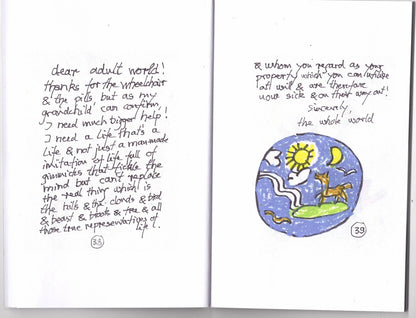 dear adult world!
thanks for the wheelchair
& the pills, but as my
grandchild can confirm,
I need much bigger help!
I need a life that's a
life & not just a man-made
imitation of life full of
gimmicks that tickle the
mind but can't replace
the real thing which is
the hills & the clouds & bird
& beast & brook & tree & all
those true representatives of
life!
33
& whom you regard as your
property which you can utilise
at will & are therefore
now sick & on their way out!
sincerely
the whole world
39